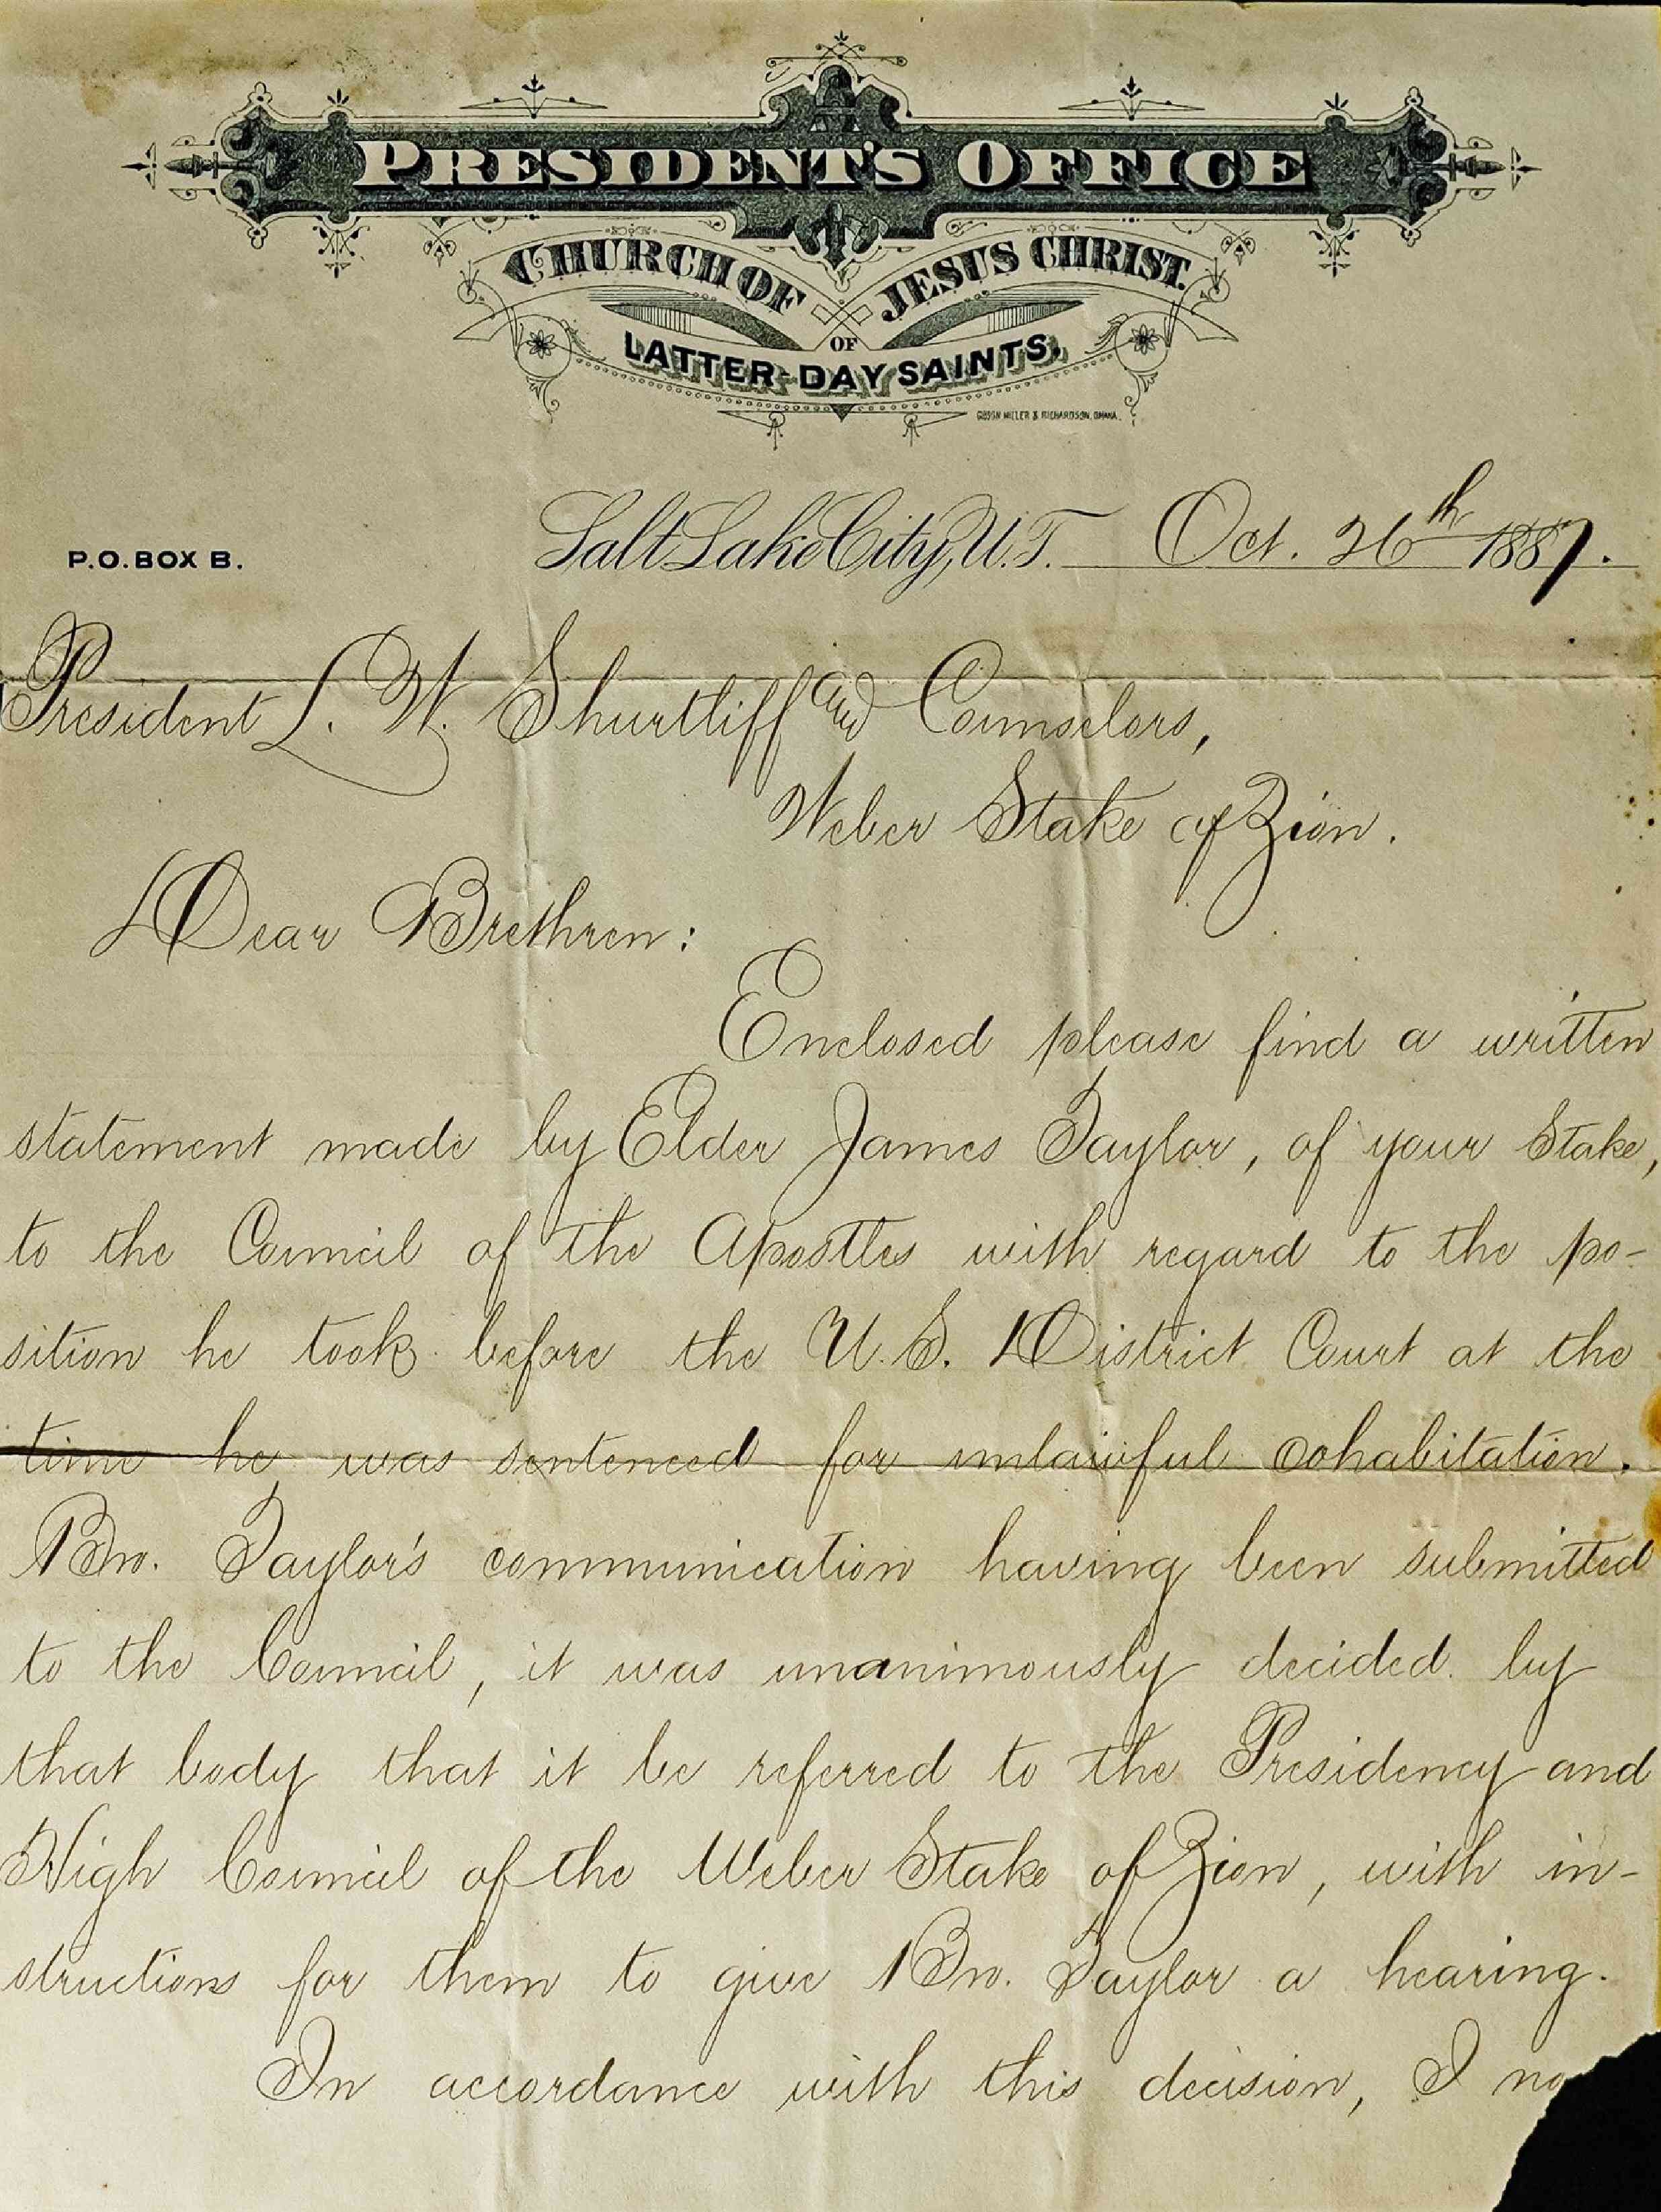 PRESIDENT'S OFFICE
CHURCH OF JESUS CHRIST.
OF
LATTER-DAY SAINTS.
MILLER & RICHARDSON, OMAHA.
P.O. BOX B.
Salt Lake City, U.T. Oct. 26th 1887.
President L. W. Shurtliff and Counselors,
Weber Stake of Zion.
Dear Brethren:
Enclosed please find a written
statement made by Elder James Taylor, of your Stake,
to the Council of the Apostles with regard to the po-
sition he took before the U.S. District Court at the
time he was sentenced for unlawful cohabitation.
Bro. Taylor's communication having been submitted
to the Council, it was unanimously decided by
that body that it be referred to the Presidency and
High Council of the Weber Stake of Zion, with in-
structions for them to give Bro. Taylor a hearing.
In accordance with this decision, I